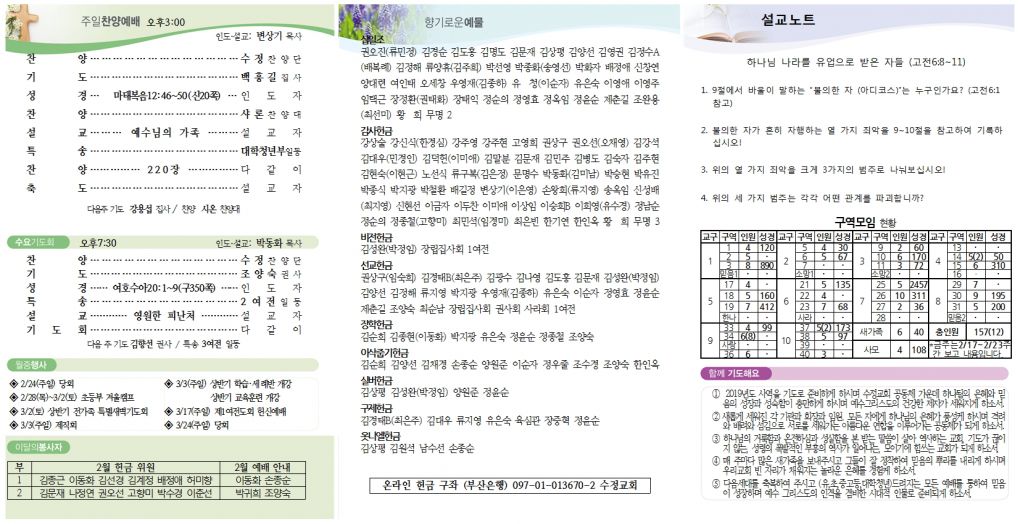 주일찬양예배 오후3:00
인도·설교: 변상기 목사
찬 양 수정찬양단
기 도 백홍길 집사
성 경 마태복음12:46~50(신20쪽) 인 도 자
찬 양 샤론찬양대
설 교 예수님의 가족 설 교 자
특 송 대학청년부일동
찬 양 220장 다 같 이
축 도 설 교 자
다음주 기도 강용섭 집사 / 찬양 시온 찬양대
수요기도회 오후7:30
인도·설교: 박동화 목사
찬 양 수정찬양단
기 도 조양숙 권사
성 경 여호수아20:1~9(구350쪽) 인 도 자
특 송 2여전 일동
설 교 영원한 피난처 설 교 자
기 도 회 다 같 이
다음 주 기도 김향선 권사 / 특송 3여전 일동
월중행사
◈ 2/24(주일) 당회
◈ 2/28(목)~3/2(토) 초등부 겨울캠프
◈ 3/2(토) 상반기 전가족 특별새벽기도회
◈ 3/3(주일) 제직회
◈ 3/3(주일) 상반기 학습·세례반 개강
상반기 교육훈련 개강
◈ 3/17(주일) 제1여전도회 헌신예배
◈ 3/24(주일) 당회
이달의봉사자
부 2월 헌금 위원 2월 예배 안내
1 김종근 이동화 김선경 김계정 배정애 허미향 이동화 손종순
2 김문재 나정연 권오선 고향미 박수경 이준선 박귀희 조양숙
향기로운예물
십일조
권오진(류민정) 김경순 김도홍 김명도 김문재 김상평 김양선 김영권 김정수A
(배복례) 김정해 류양휴(김주희) 박선영 박종화(송영선) 박화자 배정애 신창연
양대련 여인태 오세창 우영재(김종하) 유 청(이순자) 유은숙 이영애 이영주
임택근 장정환(권태화) 장태익 정순의 정영효 정옥임 정윤순 제춘길 조완용
(최선미) 황 희 무명 2
감사헌금
강상술 강신식(한경심) 강주영 강주현 고영희 권상구 권오선(오채영) 김강석
김대우(민경인) 김덕헌(이미애) 김말분 김문재 김민주 김병도 김숙자 김주현
김현숙(이현근) 노선식 류구복(김은정) 문명수 박동화(김미남) 박현혁 박유진
박종식 박지광 박철환 배길정 변상기(이은영) 손왕희(류지영) 송옥임 신성배
(최지영) 신현선 이금자 이두찬 이미애 이상임 이승희B 이희영(유수경) 정남순
정순의 정종철(고향미) 최민석(임경미) 최은빈 한기연 한인옥 황 희 무명 3
비전헌금
김성완(박정임) 장립집사회 1여전
선교헌금
권상구(임숙희) 김경태B(최은주) 김광수 김나영 김도홍 김문재 김성완(박정임)
김양선 김정해 류지영 박지광 우영재(김종하) 유은숙 이순자 정영효 정윤순
제춘길 조양숙 최순남 장립집사회 권사회 사라회 1여전
장학헌금
김순희 김종현(이동화) 박지광 유은숙 정윤순 정종철 조양숙
이삭줍기헌금
김순희 김양선 김재경 손종순 양원준 이순자 정우줄 조수경 조양숙 한인옥
실버헌금
김상평 김성완(박정임) 양원준 정윤순
구제헌금
김경태B(최은주) 김대우 류지영 유은숙 육심관 장중혁 정윤순
웃니엘헌금
김상평 김원석 남수선 손종순
온라인 헌금 구좌 (부산은행) 097-01-013670-2 수정교회
설교노트
하나님 나라를 유업으로 받은 자들 (고전6:8~11)
1. 9절에서 바울이 말하는 "불의한 자 (아디코스)"는 누구인가요? (고전6:1
참고)
2. 불의한 자가 흔히 자행하는 열 가지 죄악을 9~10절을 참고하여 기록하
십시오!
3. 위의 열 가지 죄악을 크게 3가지의 범주로 나눠보십시오!
4. 위의 세 가지 범주는 각각 어떤 관계를 파괴합니까?
구역모임 현황
교구 구역 인원 성경 교구 구역 인원 성경 교구 구역 인원 성경 교구 구역 인원 성경
1 1 4 120 2 5 4 30 3 9 2 60 4 13 · ·
2 5 · 6 5 67 10 6 170 14 5(2) 50
3 8 890 7 · · 11 3 72 15 6 310
믿음1 · · 소망1 · · 소망2 · · 16 · ·
5 17 4 · 6 21 5 135 7 25 5 2457 8 29 7 ·
18 5 160 22 4 · 26 10 311 30 9 195
19 7 412 23 7 68 27 2 36 31 5 200
한나 · · 사라 · · 28 · · 믿음2 · ·
9 33 4 99 10 37 5(2) 173 새가족 6 40 총인원 157(12)
34 6(8) · 38 5 97
사랑 · · 39 · · 사모 4 108 *금주는2/17~2/23주
36 6 · 40 3 · 간 보고 내용입니다.
함께 기도해요
① 2019년도 사역을 기도로 준비하게 하시며 수정교회 공동체 가운데 하나님의 은혜와 믿
음의 성장과 성숙함이 충만하게 하시며 예수그리스도의 건강한 제자가 세워지게 하소서.
② 새롭게 세워진 각 기관과 회장과 임원, 모든 자에게 하나님의 은혜가 풍성케 하시며 격려
와 배려와 섬김으로 서로를 세워가는 아름다운 연합을 이루어가는 공동체가 되게 하소서.
③ 하나님의 거룩함과 온전하심과 성실함을 본 받는 말씀이 살아 역사하는 교회, 기도가 끊이
지 않는, 성령의 폭발적인 부흥의 역사가 일어나는, 모이기에 힘쓰는 교회가 되게 하소서.
④ 매 주마다 많은 새가족을 보내주시고 그들이 잘 정착하여 믿음의 뿌리를 내리게 하시며
우리교회 빈 자리가 채워지는 놀라운 은혜를 경험케 하소서.
⑤ 다음세대를 축복하여 주시고 (유,초,중고등,대학청년)드려지는 모든 예배를 통하여 믿음
이 성장하며 예수 그리스도의 인격을 겸비한 시대적 인물로 준비되게 하소서.